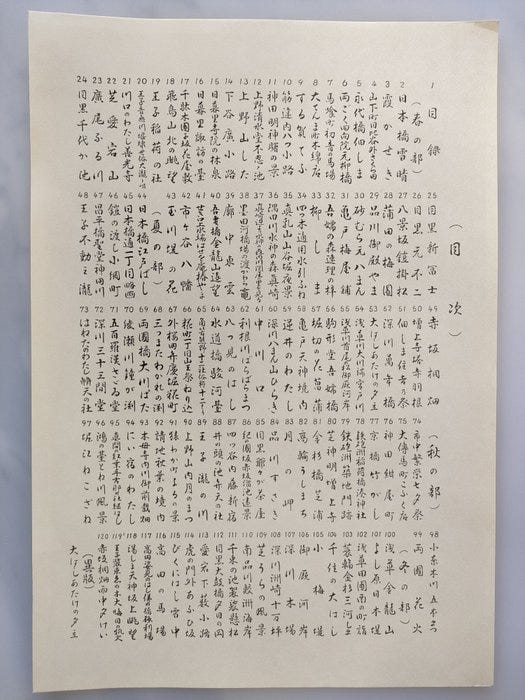 （目次）
1 目録
（春の部）
2 日本橋雪晴
3 霞かせき
4 山下町日比谷外さくら田
5 永代橋佃しま
6 両ごく回向院元柳橋
7 馬喰町初音の馬場
8 大てんま町木綿店
9 する賀てふ
10 筋違内八ツ小路
11 神田明神曙の景
12 上野清水堂不忍ノ池
13 上野山した
14 下谷廣小路
15 日暮里寺院の林泉
16 日暮里諏訪の臺
17 千駄木團子坂花屋敷
18 飛鳥山北の眺望
19 王子稲荷の社
20 王子音無川堰埭世俗大瀧ト唱
21 川口のわたし善光寺
22 芝愛宕山
23 廣尾ふる川
24 目黒千代か池
25 目黒新冨士
26 目黒元不二
27 八景坂鎧掛松
28 蒲田の梅園
29 品川御殿やま
30 砂むら元八まん
31 亀戸梅屋舗
32 吾嬬の森連理の梓
33 柳しま
34 四ツ木通用水引ふね
35 真乳山山谷堀夜景
36 隅田川水神の森真崎
37 真崎辺より水神の森内川関屋の里を見る図
38 墨田河橋場の渡かわら竈
39 廓中東雲
40 吾妻橋金龍山遠望
41 せき口上水端はせを庵椿やま
42 市ヶ谷八幡
43 玉川堤の花
（夏の部）
44 日本橋江戸ばし
45 日本橋通一丁目略画
46 鎧の渡し小網町
47 昌平橋聖堂神田川
48 王子不動ノ瀧
49 赤坂桐畑
50 増上寺塔赤羽根
51 佃しま住吉の祭
52 深川萬年橋
53 大はしあたけの夕立
54 浅草川大川端宮戸川
55 浅草川首尾の松御厩河岸
56 駒形堂吾嬬橋
57 堀切の花菖蒲
58 亀戸天神境内
59 逆井のわたし
60 深川八まん山ひらき
61 中川口
62 利根川ばらばらまつ
63 八ツ見のはし
64 水道橋駿河臺
65 角筈熊野十二社俗称十二そう
66 糀町一丁目山王祭ねり込
67 外桜田弁慶堀糀町
68 みつまたわかれの淵
69 両國橋大川ばた
70 綾瀬川鐘か淵
71 五百羅漢さゞゐ堂
72 深川三十三間堂
73 はねたのわたし弁天の社
（秋の部）
74 市中繁栄七夕祭
75 大傳馬町こふく店
76 神田紺屋町
77 京橋竹がし
78 鉄炮洲稲荷橋湊神社
79 鉄炮洲築地門跡
80 芝神明増上寺
81 金杉橋芝浦
82 高輪うしまち
83 月の岬
84 品川すさき
85 目黒爺々が茶屋
86 紀の國坂赤坂溜池遠景
87 四ツ谷内藤新宿
88 井の頭の池弁天の社
89 王子瀧の川
90 上野山内月のまつ
91 猿わか町よるの景
92 請地秋葉の境内
93 木母寺内川御前栽畑
94 にい宿のわたし
95 真間の紅葉手古那の社継はし
96 鴻の臺とね川風景
97 堀江ねこざね
98 小奈木川五本まつ
99 両國花火
（冬の部）
100 浅草金龍山
101 よし原日本堤
102 浅草田圃酉の町詣
103 蓑輪金杉三河しま
104 千住の大はし
105 小梅堤
106 御厩河岸
107 深川木場
108 深川洲崎十万坪
109 芝うらの風景
110 南品川鮫洲海岸
111 千束の池袈裟懸松
112 目黒太鼓橋夕日の岡
113 愛宕下薮小路
114 虎の門外あふひ坂
115 びくにはし雪中
116 高田の馬場
117 高田姿見のはし俤の橋砂利場
118 湯しま天神坂上眺望
119 王子装束ゑの木大晦日の狐火
120 赤坂桐畑雨中夕けい
（異版）
大はしあたけの夕立